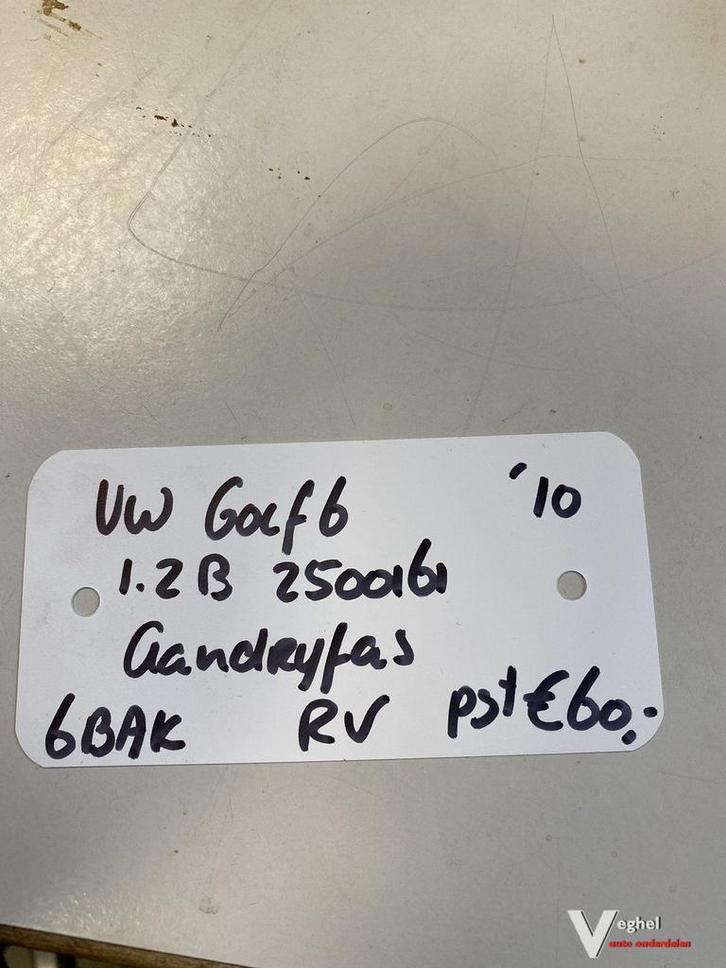 VW Golf 6 '10
1.2 B 2500161
Aandryfas
6BAK RV pst €60,-
Veghel
auto onderdelen